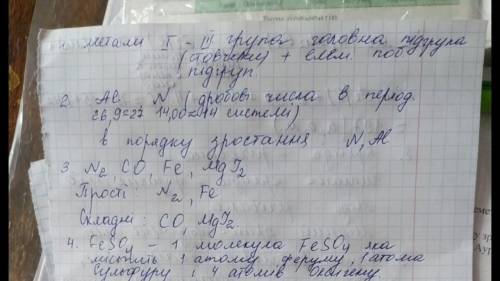 1. метали I - III група головна підгрупа
(            ) + елем. поб.
підгруп
2. Al N (дробові числа в період.
26,9≈27 14,00≈14 системі)
в порядку зростання N, Al
3. N2, CO, Fe, MgI2
Прості N2, Fe
Складні: CO, MgI2
4. FeSO4 - 1 молекула FeSO4 яка
містить 1 атом феруму, 1 атома
сульфуру і 4 атомів оксигену.